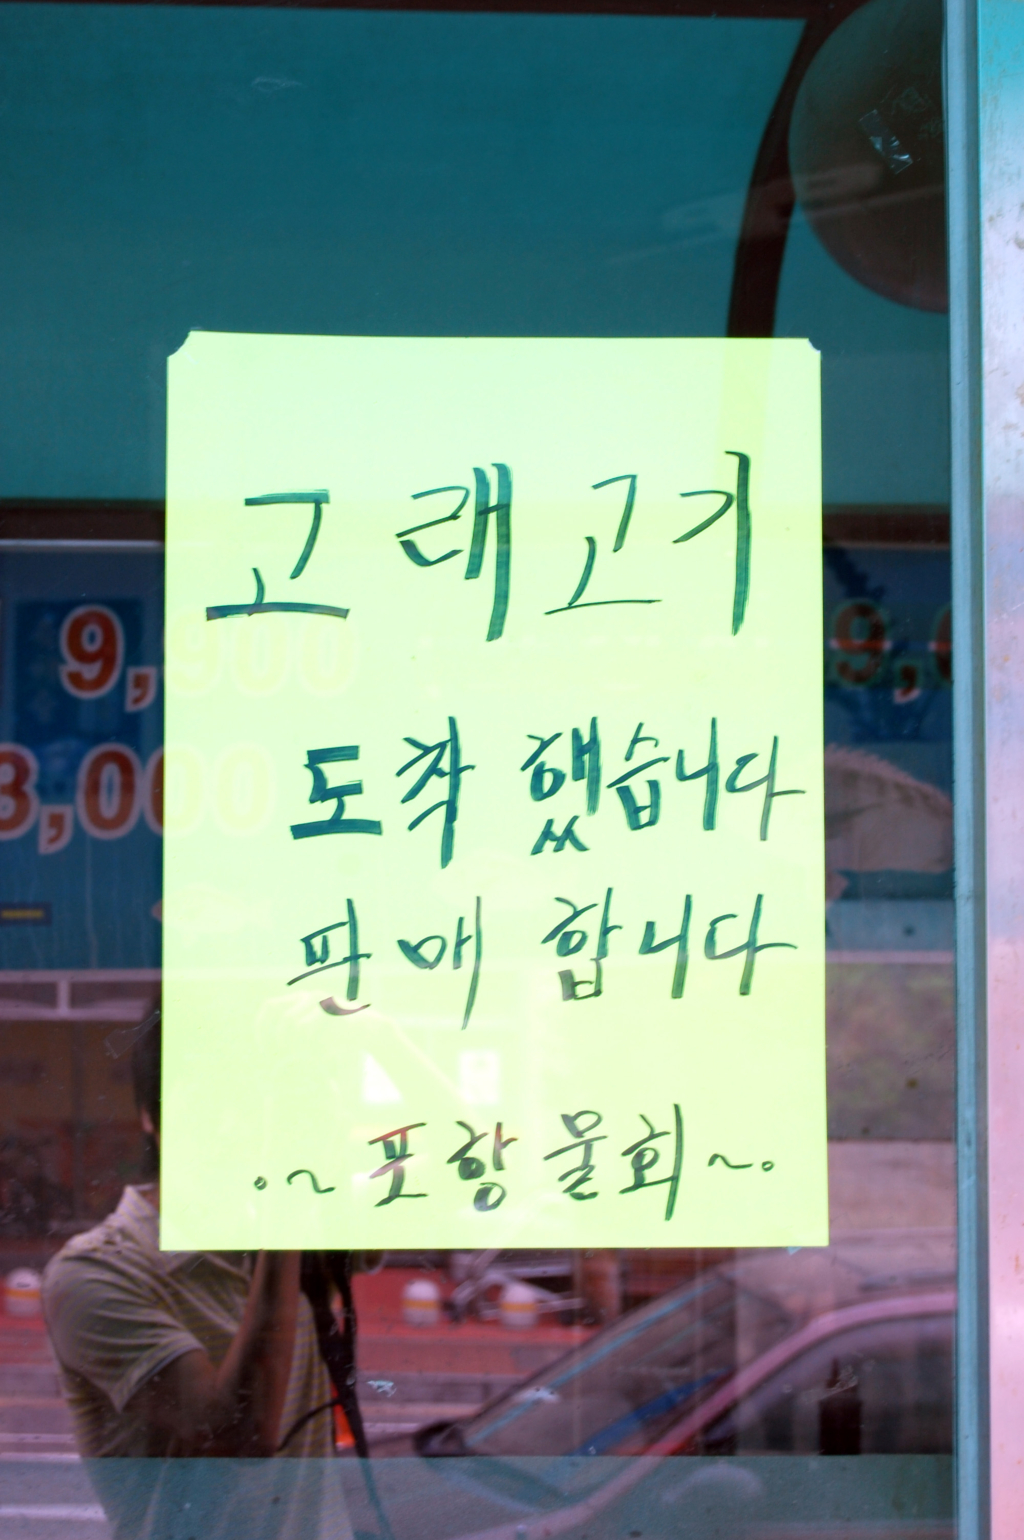 고래고기
도착했습니다
판매합니다
~포항물회~
9,900
3,000